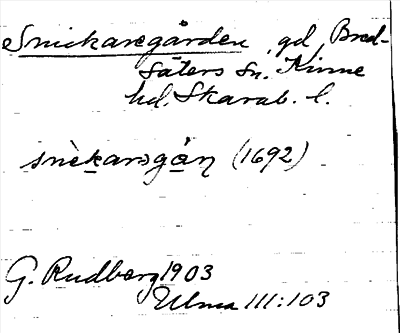 Snickaregården, gd, Bred-
säters sn. Kinne
hd. Skarab. l.
snèkarsgán (1692)
G. Rudberg 1903
Ulma 111:103